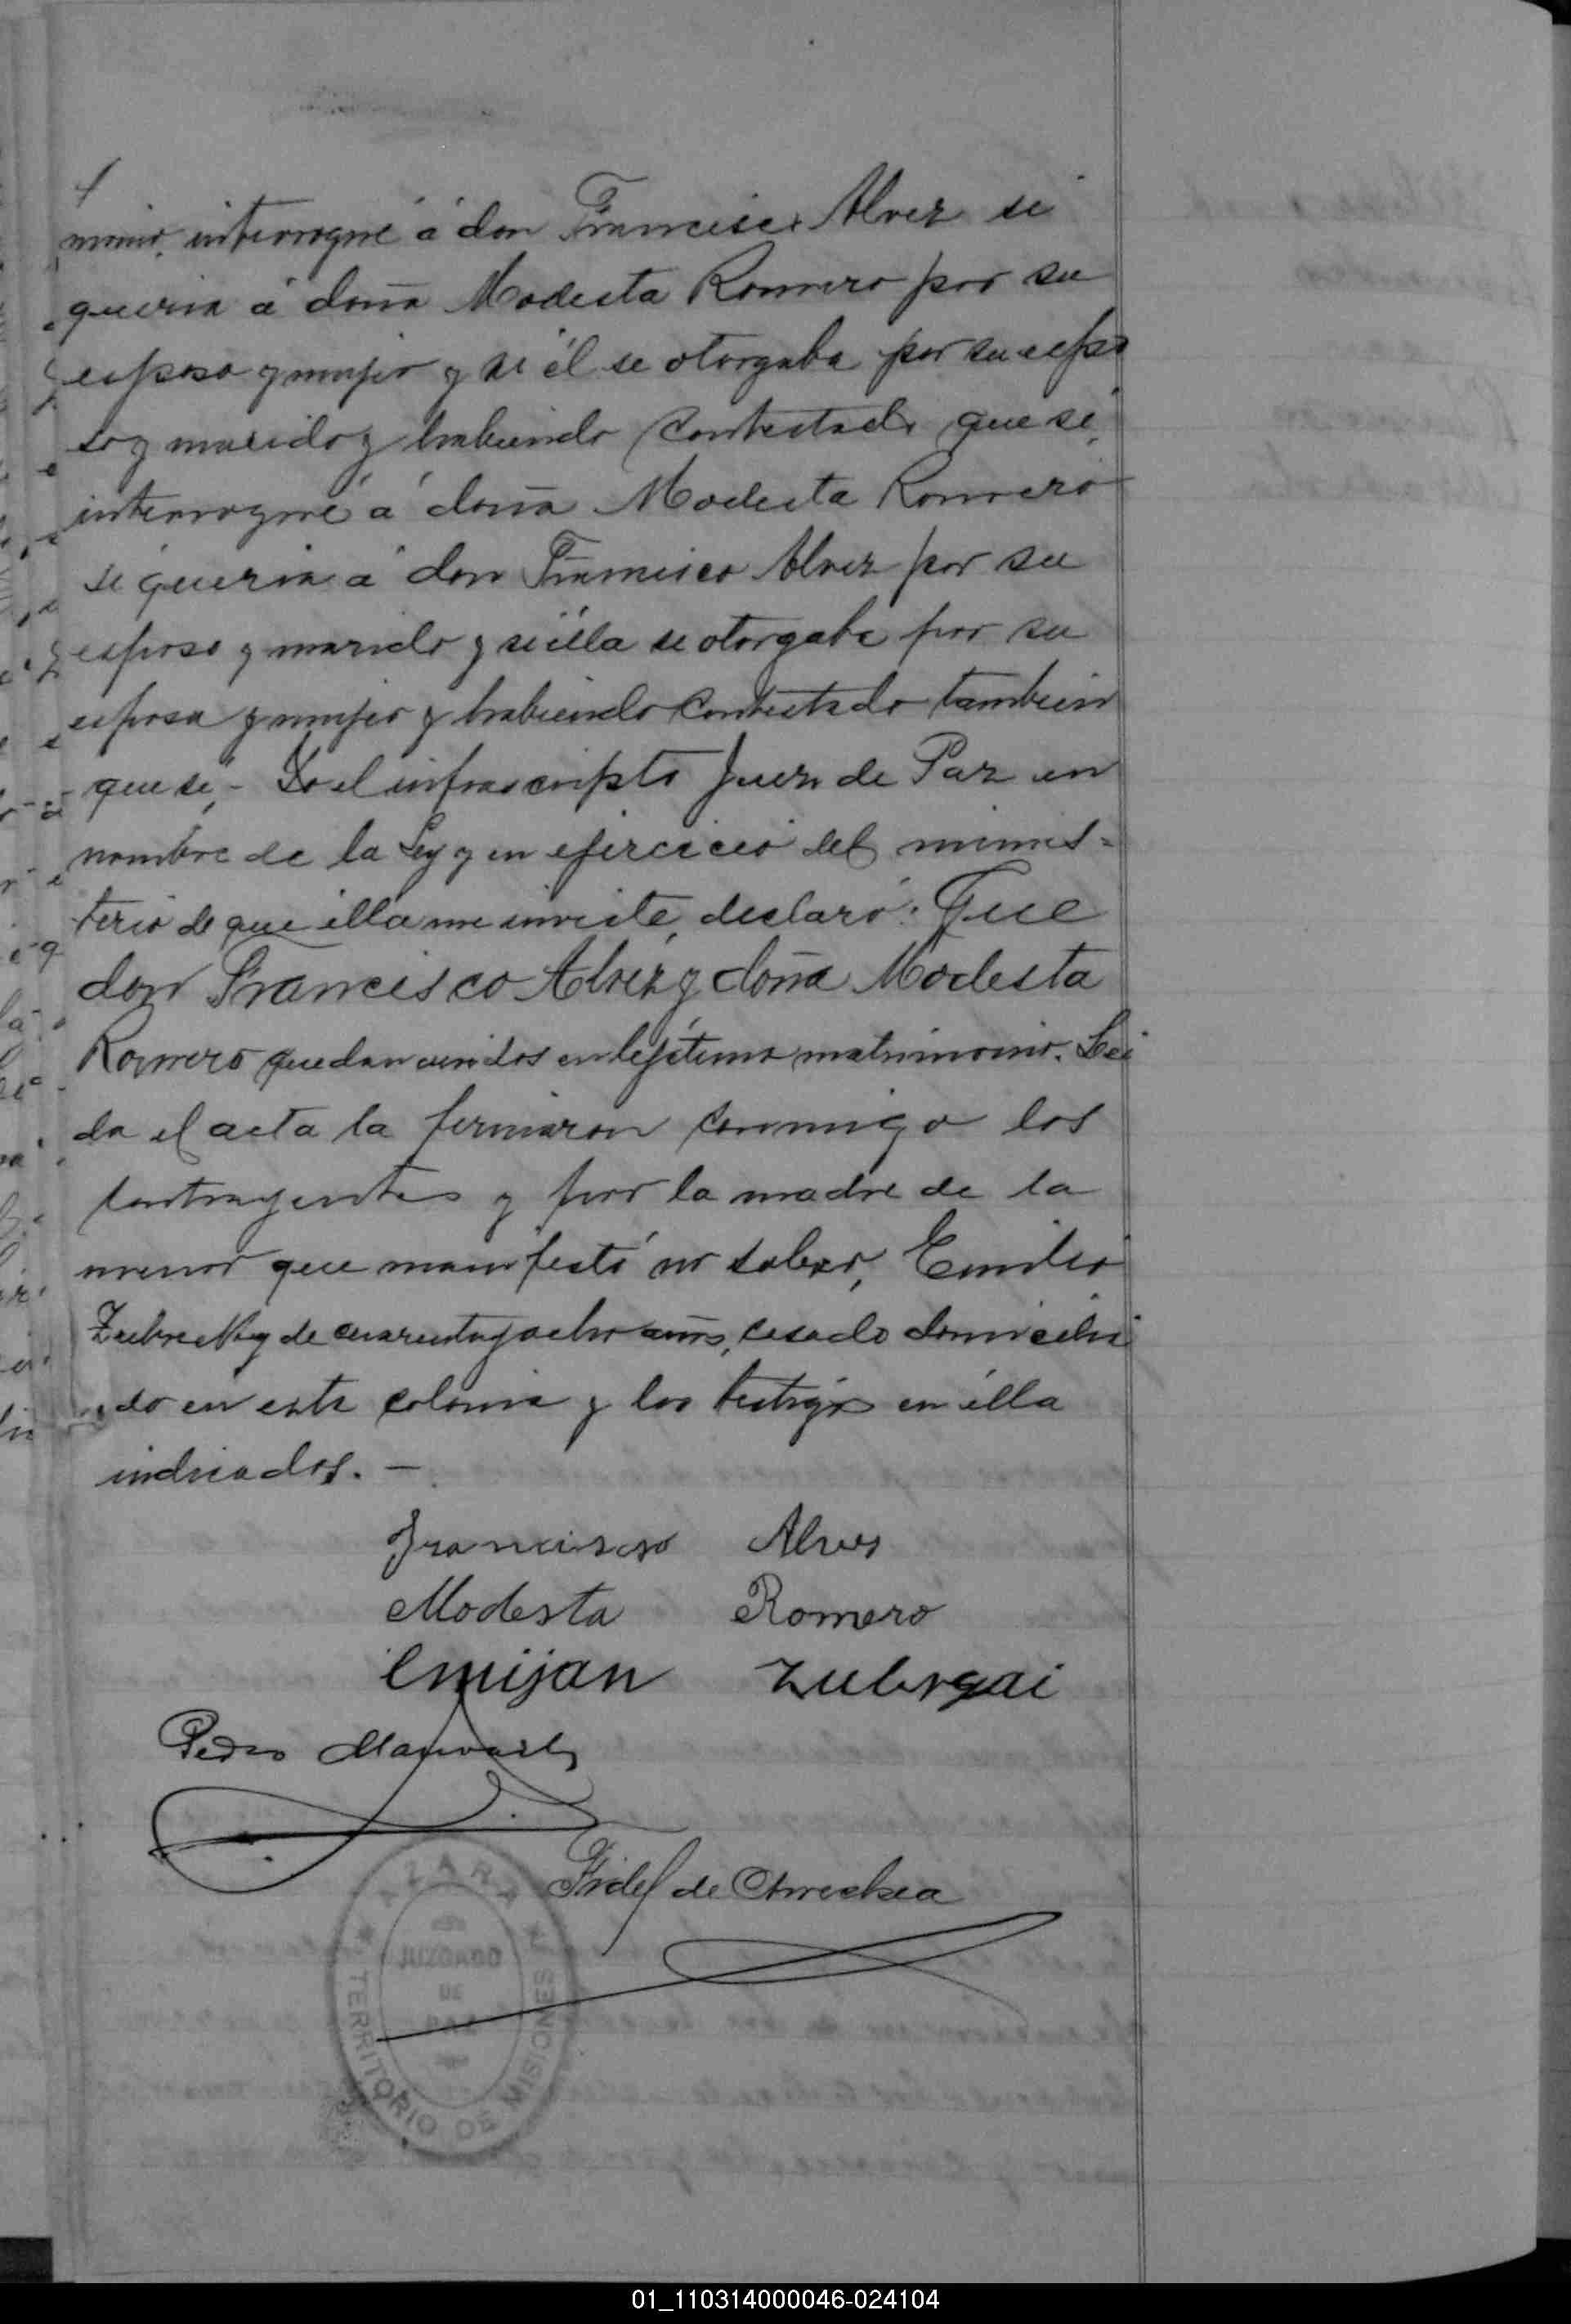 monio, interrogué á don Francisco Alvez si
queria á doña Modesta Romero por su
esposa y mujer y si él se otorgaba por su espo
so y marido y habiendo contestado que sí,
interrogué á doña Modesta Romero
si queria á don Francisco Alvez por su
esposo y marido y si élla se otorgaba por su
esposa y mujer y habiendo contestado tambien
que sí,- Yo el infrascripto Juez de Paz en
nombre de la Ley y en ejercicio del minis-
terio de que élla me inviste, declaró: Que
don Francisco Alvez y doña Modesta
Romero quedan unidos en lejítimo matrimonio. Lei
da el acta la firmaron conmigo los
contrayentes y por la madre de la
menor que manifestó no saber, Emilio
de cuarenta y ocho años, casado domicilia
do en esta colonia y los testigos en élla
indicados. —
Francisco Alves
Modesta Romero
Emijan Zubrgai
Pedro
Fidel de
AZARA
JUZGADO
DE
PAZ
TERRITORIO DE MISIONES
01_110314000046-024104